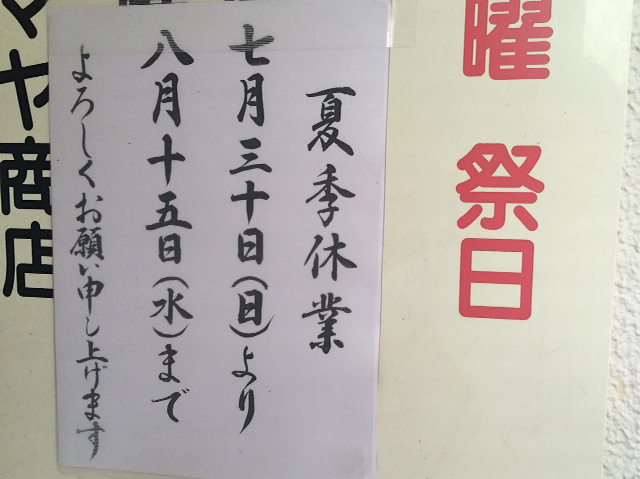 曜 祭日
夏季休業
七月三十日(日)より
八月十五日(水)まで
よろしくお願い申し上げます
マヤ商店